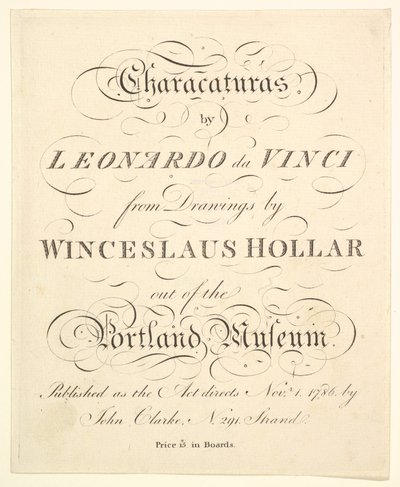 Characaturas
by
LEONARDO da VINCI
from Drawings by
WINCESLAUS HOLLAR
out of the
Portland Muſeum.
Published as the Act directs Nov.r 1. 1786. by
John Clarke, No. 291. Strand.
Price 15s in Boards.